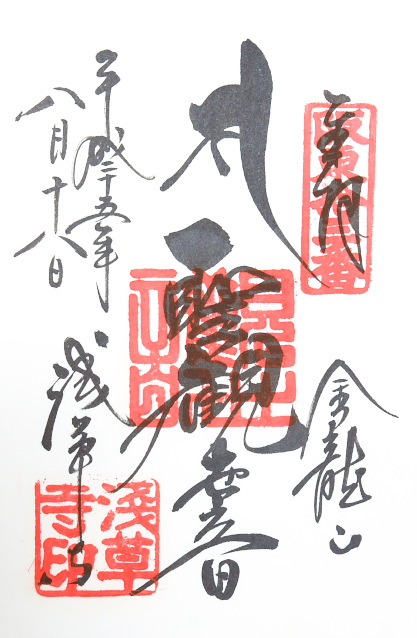 奉拝
坂東拾三番
金龍山
聖観世音
平成二十五年
八月十八日
浅草寺
淺草寺印